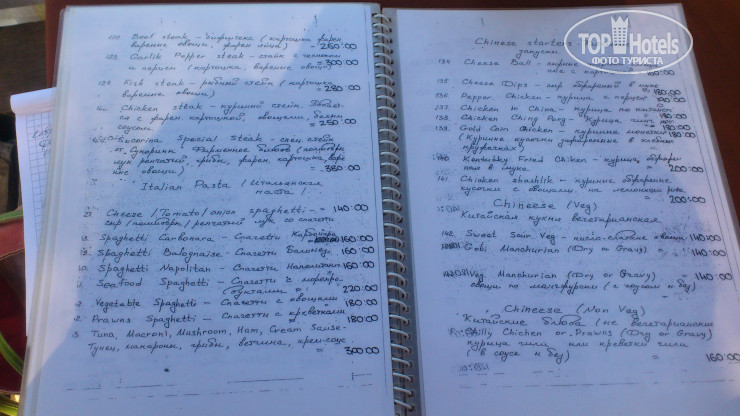 Beef steak - бифштекс (картошка фри
варенные овощи, фарен яйца) = 250:00
Garlik Pepper steak - стейк с чесноком
и перцем (картошка, варенные овощи) = 300:00
Fish steak - рыбный стейк (картошка
варенные овощи) = 280:00
Chicken steak - куриный стейк.
ся с фарен картошкой, овощами, белым
соусом = 250:00
Special Steak - спец. стейк
от Фирменное блюдо
лук репчатый, грибы, фарен, картошка, варе
ные овощи) = 380:00
Italian Pasta / Итальянская
паста /
Cheese / Tomato / onion spaghetti = 140:00
сыр / помидоры / репчатый лук со спагетти
Spaghetti Carbonara - Спагетти Карбонара 160:00
Spaghetti Bolognaise - Спагетти 160:00
Spaghetti Napolitan - Спагетти 160:00
Seafood Spaghetti - Спагетти с морепро-
дуктами = 220:00
Vegetable Spaghetti - Спагетти с овощами 180:00
Prawns Spaghetti - Спагетти с креветками 180:00
Tuna, Macroni, Mushroom, Ham, Cream Sause-
Тунец, макароны, грибы, ветчина, крем-соус
= 300:00
Chinese starters
закуски
134. Cheese Ball - сырные
180:00
135. Cheese Dips - сыр обжареный в муке
180:00
136. Pepper Chicken - курица с перцем 190:00
137. Chicken in China - курица по китайски
138. Chicken Ching Pong - Курица чинг понг
139. Gold Coin Chicken - куриные монетки
(Куриные кусочки
180:00
Kentucky Fried Chiken - курица, обжарен
ная в муке = 200:00
141. Chicken shashlik - куриные обжаренные
кусочки с овощами, на лемонном
= 200:00
Chineese (Veg)
Китайская кухня вегетерианская
142. Sweet Sour Veg - кисло-сладкие овощи 140:00
Gobi Manchurian (Dry or Gravy)
= 140:00
Veg. Manchurian (Dry or Gravy) = 140:00
овощи по манчжурски (с соусом и без)
Chineese (Non Veg)
Китайские блюда (не вегетерианские
Chilly Chicken or Prawns (Dry or Gravy)
курица чили или креветки чили
(в соусе и без) = 160:00
TOP Hotels
ФОТО ТУРИСТА